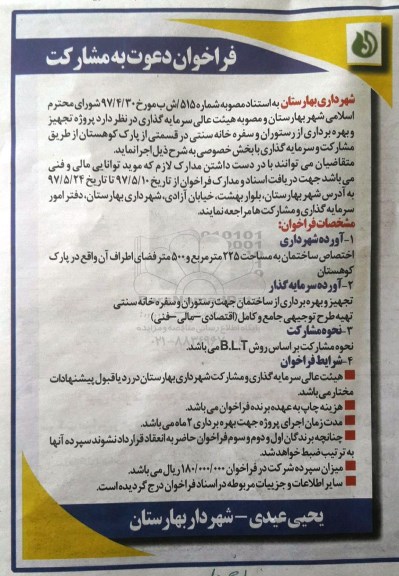 فراخوان دعوت به مشارکت
شهرداری بهارستان به استناد مصوبه شماره ۵۱۵/ش ب مورخ ۹۷/۴/۳۰ شورای محترم
اسلامی شهر بهارستان و مصوبه هیئت عالی سرمایه گذاری در نظر دارد پروژه تجهیز
و بهره برداری از رستوران و سفره خانه سنتی در قسمتی از پارک کوهستان از طریق
مشارکت و سرمایه گذاری با بخش خصوصی به شرح ذیل اجرا نماید.
متقاضیان می توانند با در دست داشتن مدارک لازم که موید توانایی مالی و فنی
می باشد جهت دریافت اسناد و مدارک فراخوان از تاریخ ۹۷/۵/۱۰ تا تاریخ ۹۷/۵/۲۴
به آدرس شهر بهارستان، بلوار بهشت، خیابان آزادی، شهرداری بهارستان، دفتر امور
سرمایه گذاری و مشارکت ها مراجعه نمایند.
مشخصات فراخوان:
۱-آورده شهرداری
اختصاص ساختمان به مساحت ۲۲۵ متر مربع و ۵۰۰ متر فضای اطراف آن واقع در پارک
کوهستان
۲-آورده سرمایه گذار
تجهیز و بهره برداری از ساختمان جهت رستوران و سفره خانه سنتی
تهیه طرح توجیهی جامع و کامل (اقتصادی-مالی-فنی)
۳-نحوه مشارکت
نحوه مشارکت بر اساس روش B.L.T می باشد.
۴-شرایط فراخوان
هیئت عالی سرمایه گذاری و مشارکت شهرداری بهارستان در رد یا قبول پیشنهادات
مختار می باشد.
هزینه چاپ به عهده برنده فراخوان می باشد.
مدت زمان اجرای پروژه جهت بهره برداری ۲ ماه می باشد.
چنانچه برندگان اول و دوم و سوم فراخوان حاضر به انعقاد قرارداد نشوند سپرده آنها
به ترتیب ضبط خواهد شد.
میزان سپرده شرکت در فراخوان ۱۸۰/۰۰۰/۰۰۰ ریال می باشد.
سایر اطلاعات و جزییات مربوطه در اسناد فراخوان درج گردیده است.
یحیی عیدی - شهردار بهارستان